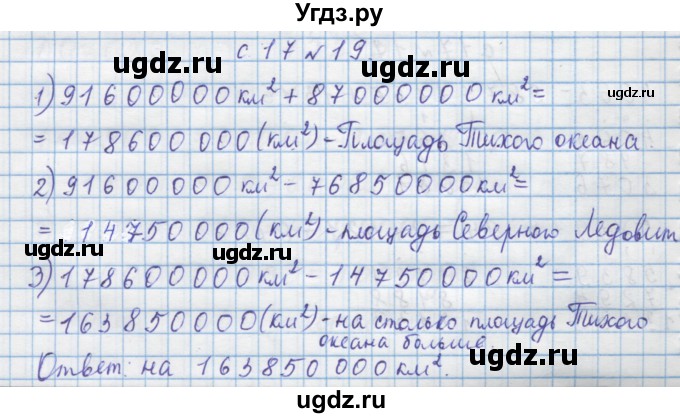 Угдз.ру
с 17 № 19
ugdz.ru ugdz.ru
1) 91600000 км² + 87000000 км² =
ugdz.ru
= 178600000 (км²) - Площадь Тихого океана
ugdz.ru ugdz.ru
2) 91600000 км² - 76850000 км² =
ugdz.ru
= 14750000 (км²) - площадь Северного Ледовит
ugdz.ru ugdz.ru
3) 178600000 км² - 14750000 км² =
ugdz.ru
= 163850000 (км²) - на столько площадь Тихого
океана больше.
ugdz.ru ugdz.ru
Ответ: на 163850000 км².
Угдз.ру